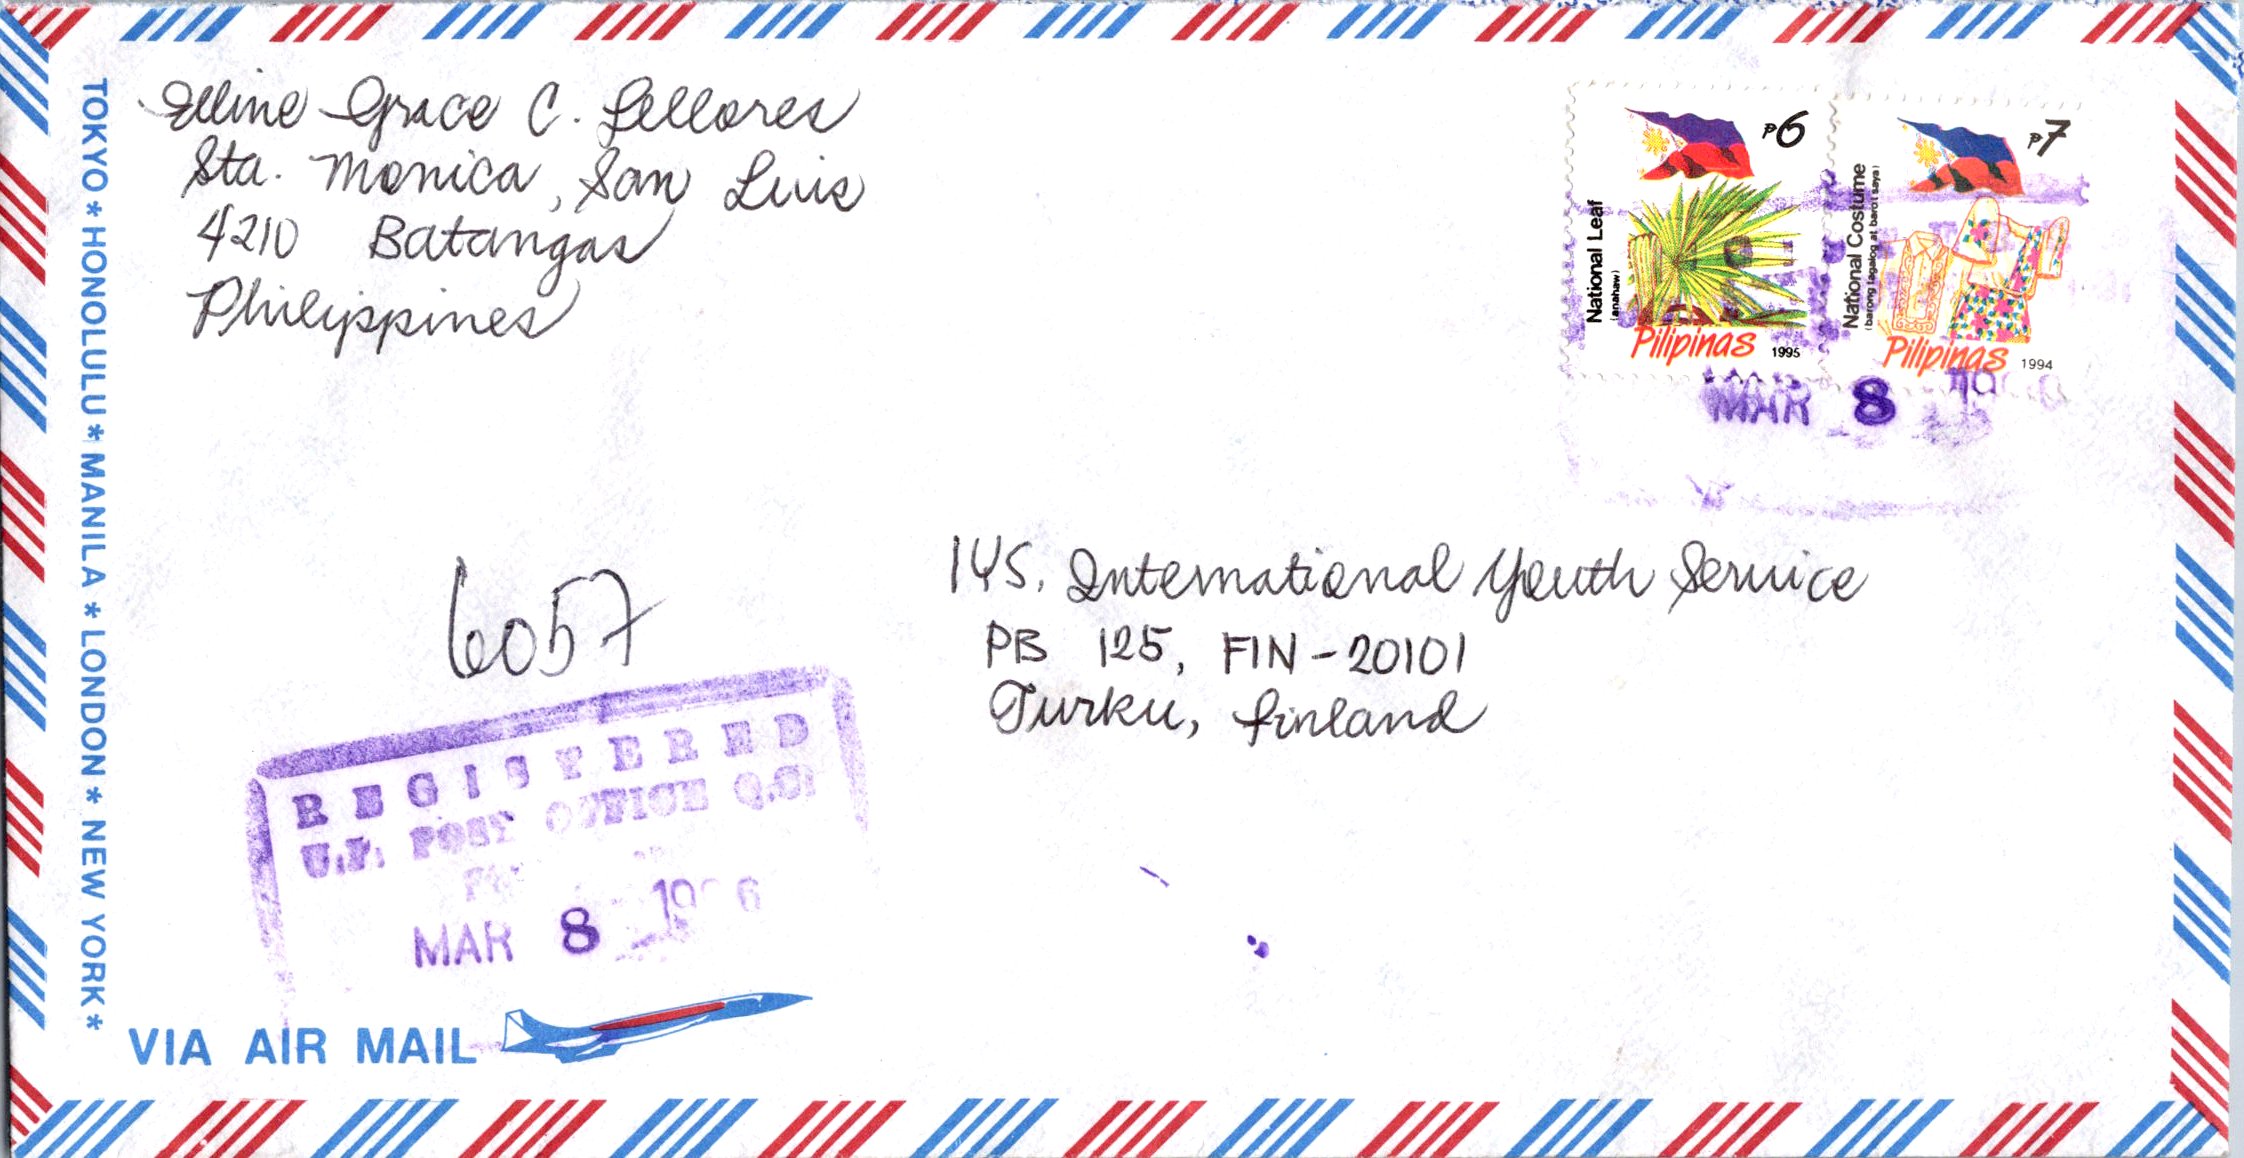 Elline Grace C. Lellores
Sta. Monica, San Luis
4210 Batangas
Philippines
TOKYO * HONOLULU * MANILA * LONDON * NEW YORK *
₱6
National Leaf
(anahaw)
Pilipinas 1995
₱7
National Costume
(barong tagalog at baro't saya)
Pilipinas 1994
MAR 8
IYS, International Youth Service
PB 125, FIN-20101
Turku, Finland
6057
REGISTERED
U.P. POST OFFICE Q.C.
MAR 8 1996
VIA AIR MAIL